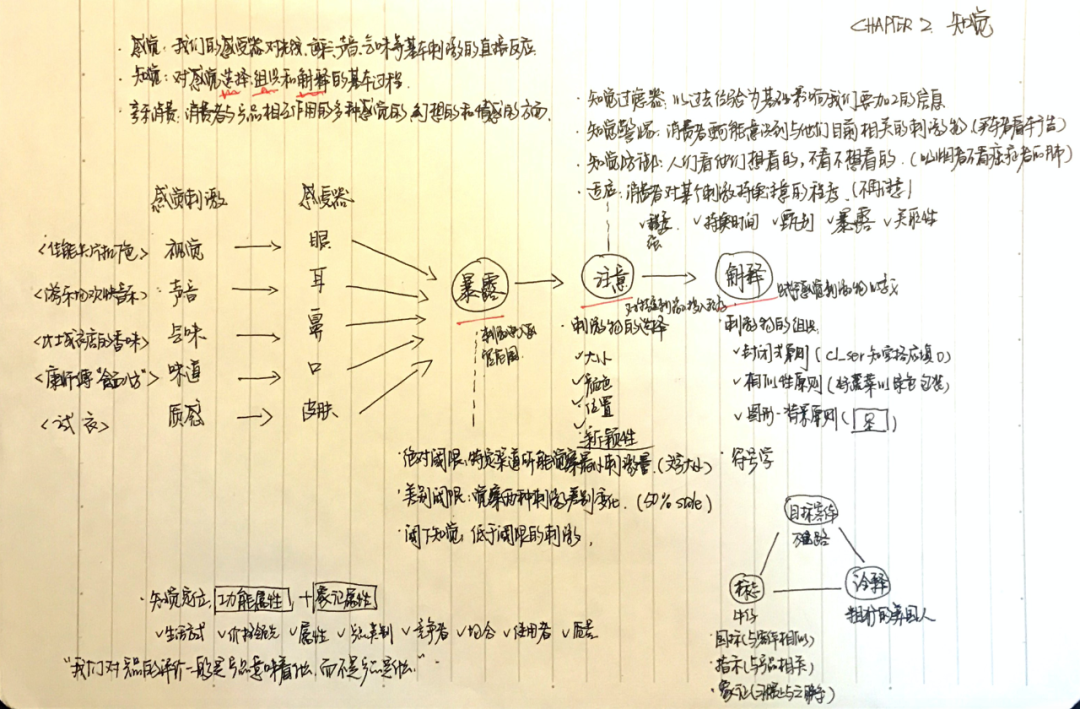 CHAPTER 2. 知觉
·感觉：我们的感受器对光线、色彩、声音、气味等基本刺激的直接反应.
·知觉：对感觉选择、组织和解释的基本过程.
享乐消费：消费者与产品相互作用的多种感觉的、幻想的和情感的方面.
·知觉过滤器：以过去经验为基础影响我们要加工的信息
·知觉警惕：消费者更可能意识到与他们目前相关的刺激物(买车者看车广告)
·知觉防御：人们看他们想看的，不看不想看的.(吸烟者不看癌症者的肺)
·适应：消费者对某个刺激持续注意的程度.(不再注意)
✓强度 ✓持续时间 ✓甄别 ✓暴露 ✓关联性
感觉刺激 感受器
<佳能卡片机广告> 视觉 → 眼
<游乐场欢快音乐> 声音 → 耳
<比士达店的香味> 气味 → 鼻
<康师傅"食面八方"> 味道 → 口
<试衣> 质感 → 皮肤
暴露 → 注意 → 解释
刺激物的选择
✓大小
✓颜色
✓位置
✓新颖性
刺激物的组织
✓封闭式原则(cl_ser知觉格应填o)
✓相似性原则(好蔬菜以绿色包装)
✓图形-背景原则
·符号学
·绝对阈限：特定渠道所能觉察最小刺激量.(文字大小)
·差别阈限：觉察两种刺激差别变化.(50% sale)
·阈下知觉：低于阈限的刺激.
目标客体
万宝路
标志
牛仔
诠释
粗犷的美国人
·图标(与产品相似)
·指示(与产品相关)
·象征
·知觉定位 功能属性 + 象征属性
✓生活方式 ✓价格领先 ✓属性 ✓产品类别 ✓竞争者 ✓场合 ✓使用者 ✓质量
"我们对产品的评价一般是产品意味着什么，而不是产品是什么."